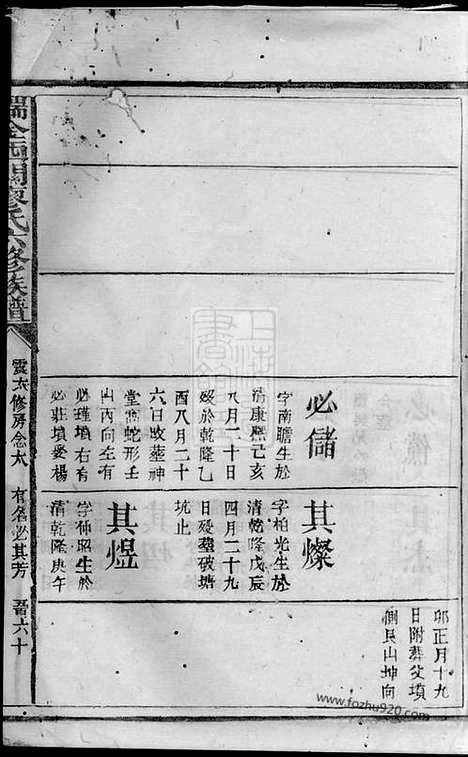 卯正月十九
日附葬父墳
側艮山坤向
必儲
字南瞻生於
清康熙己亥
八月二十日
歿於乾隆乙
酉八月二十
六日改葬神
堂㘭蛇形壬
山丙向左有
必瑾墳右有
必莊墳妻楊
其燦
字柏光生於
清乾隆戊辰
四月二十九
日歿葬破塘
坑止
其煜
字仲昭生於
清乾隆庚午
瑞金西關廖氏六修族譜
雲太修房念太
有名必其芳
晉六十
上海圖書館
www.fozhu920.com